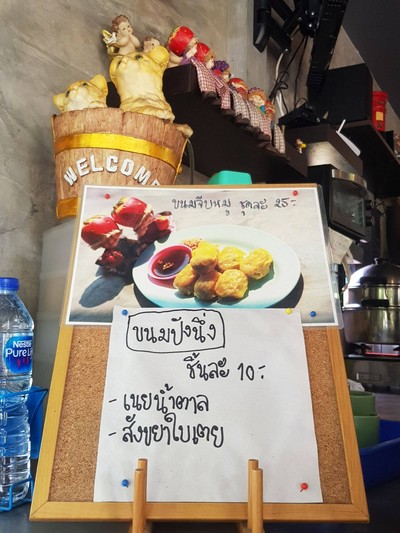 WELCOME
ขนมจีบหมู ชุดละ 25.-
ขนมปังนึ่ง
ชิ้นละ 10.-
- เนยน้ำตาล
- สังขยาใบเตย
Nestlé
Pure Life